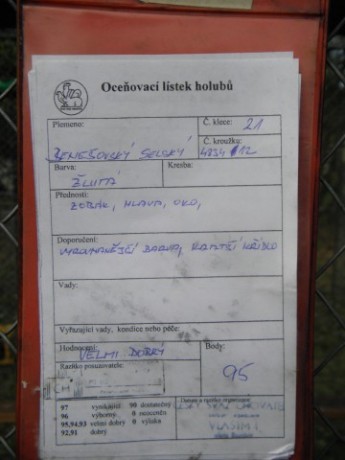 Oceňovací lístek holubů
Plemeno: Č. klece: 21
BENEŠOVSKÝ SELSKÝ Č. kroužku:
4834 12
Barva: Kresba:
ŽLUTÁ
Přednosti:
ZOBÁK, HLAVA, OKO,
Doporučení:
VYROVNANĚJŠÍ BARVA, KRATŠÍ KŘÍDLO
Vady:
Vyřazující vady, kondice nebo péče:
Hodnocení: Body:
VELMI DOBRÝ 95
Razítko posuzovatele:
Datum a razítko organizace
97 vynikající 90 dostatečný
96 výborný 0 neoceněn
95,94,93 velmi dobrý 0 výluka
92,91 dobrý
VLAŠIM